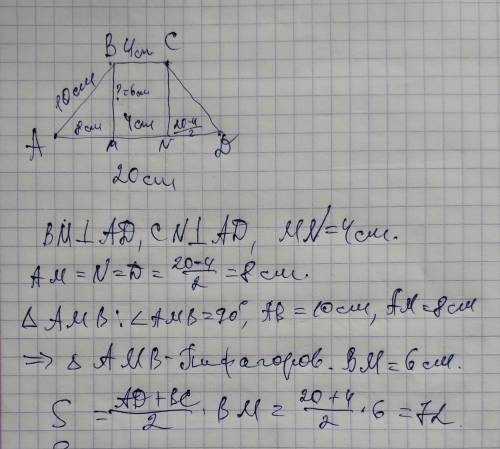 B 4см C
10см
?=6см
A 8см 4см (20-4)/2
M N D
20см
BM⊥AD, CN⊥AD, MN=4см.
AM=N=D=(20-4)/2=8см.
Δ AMB: ∠AMB=90°, AB=10см, AM=8см
⇒ Δ AMB-Пифагоров. BM=6см.
S =(AD+BC)/2·BM=(20+4)/2·6=72.